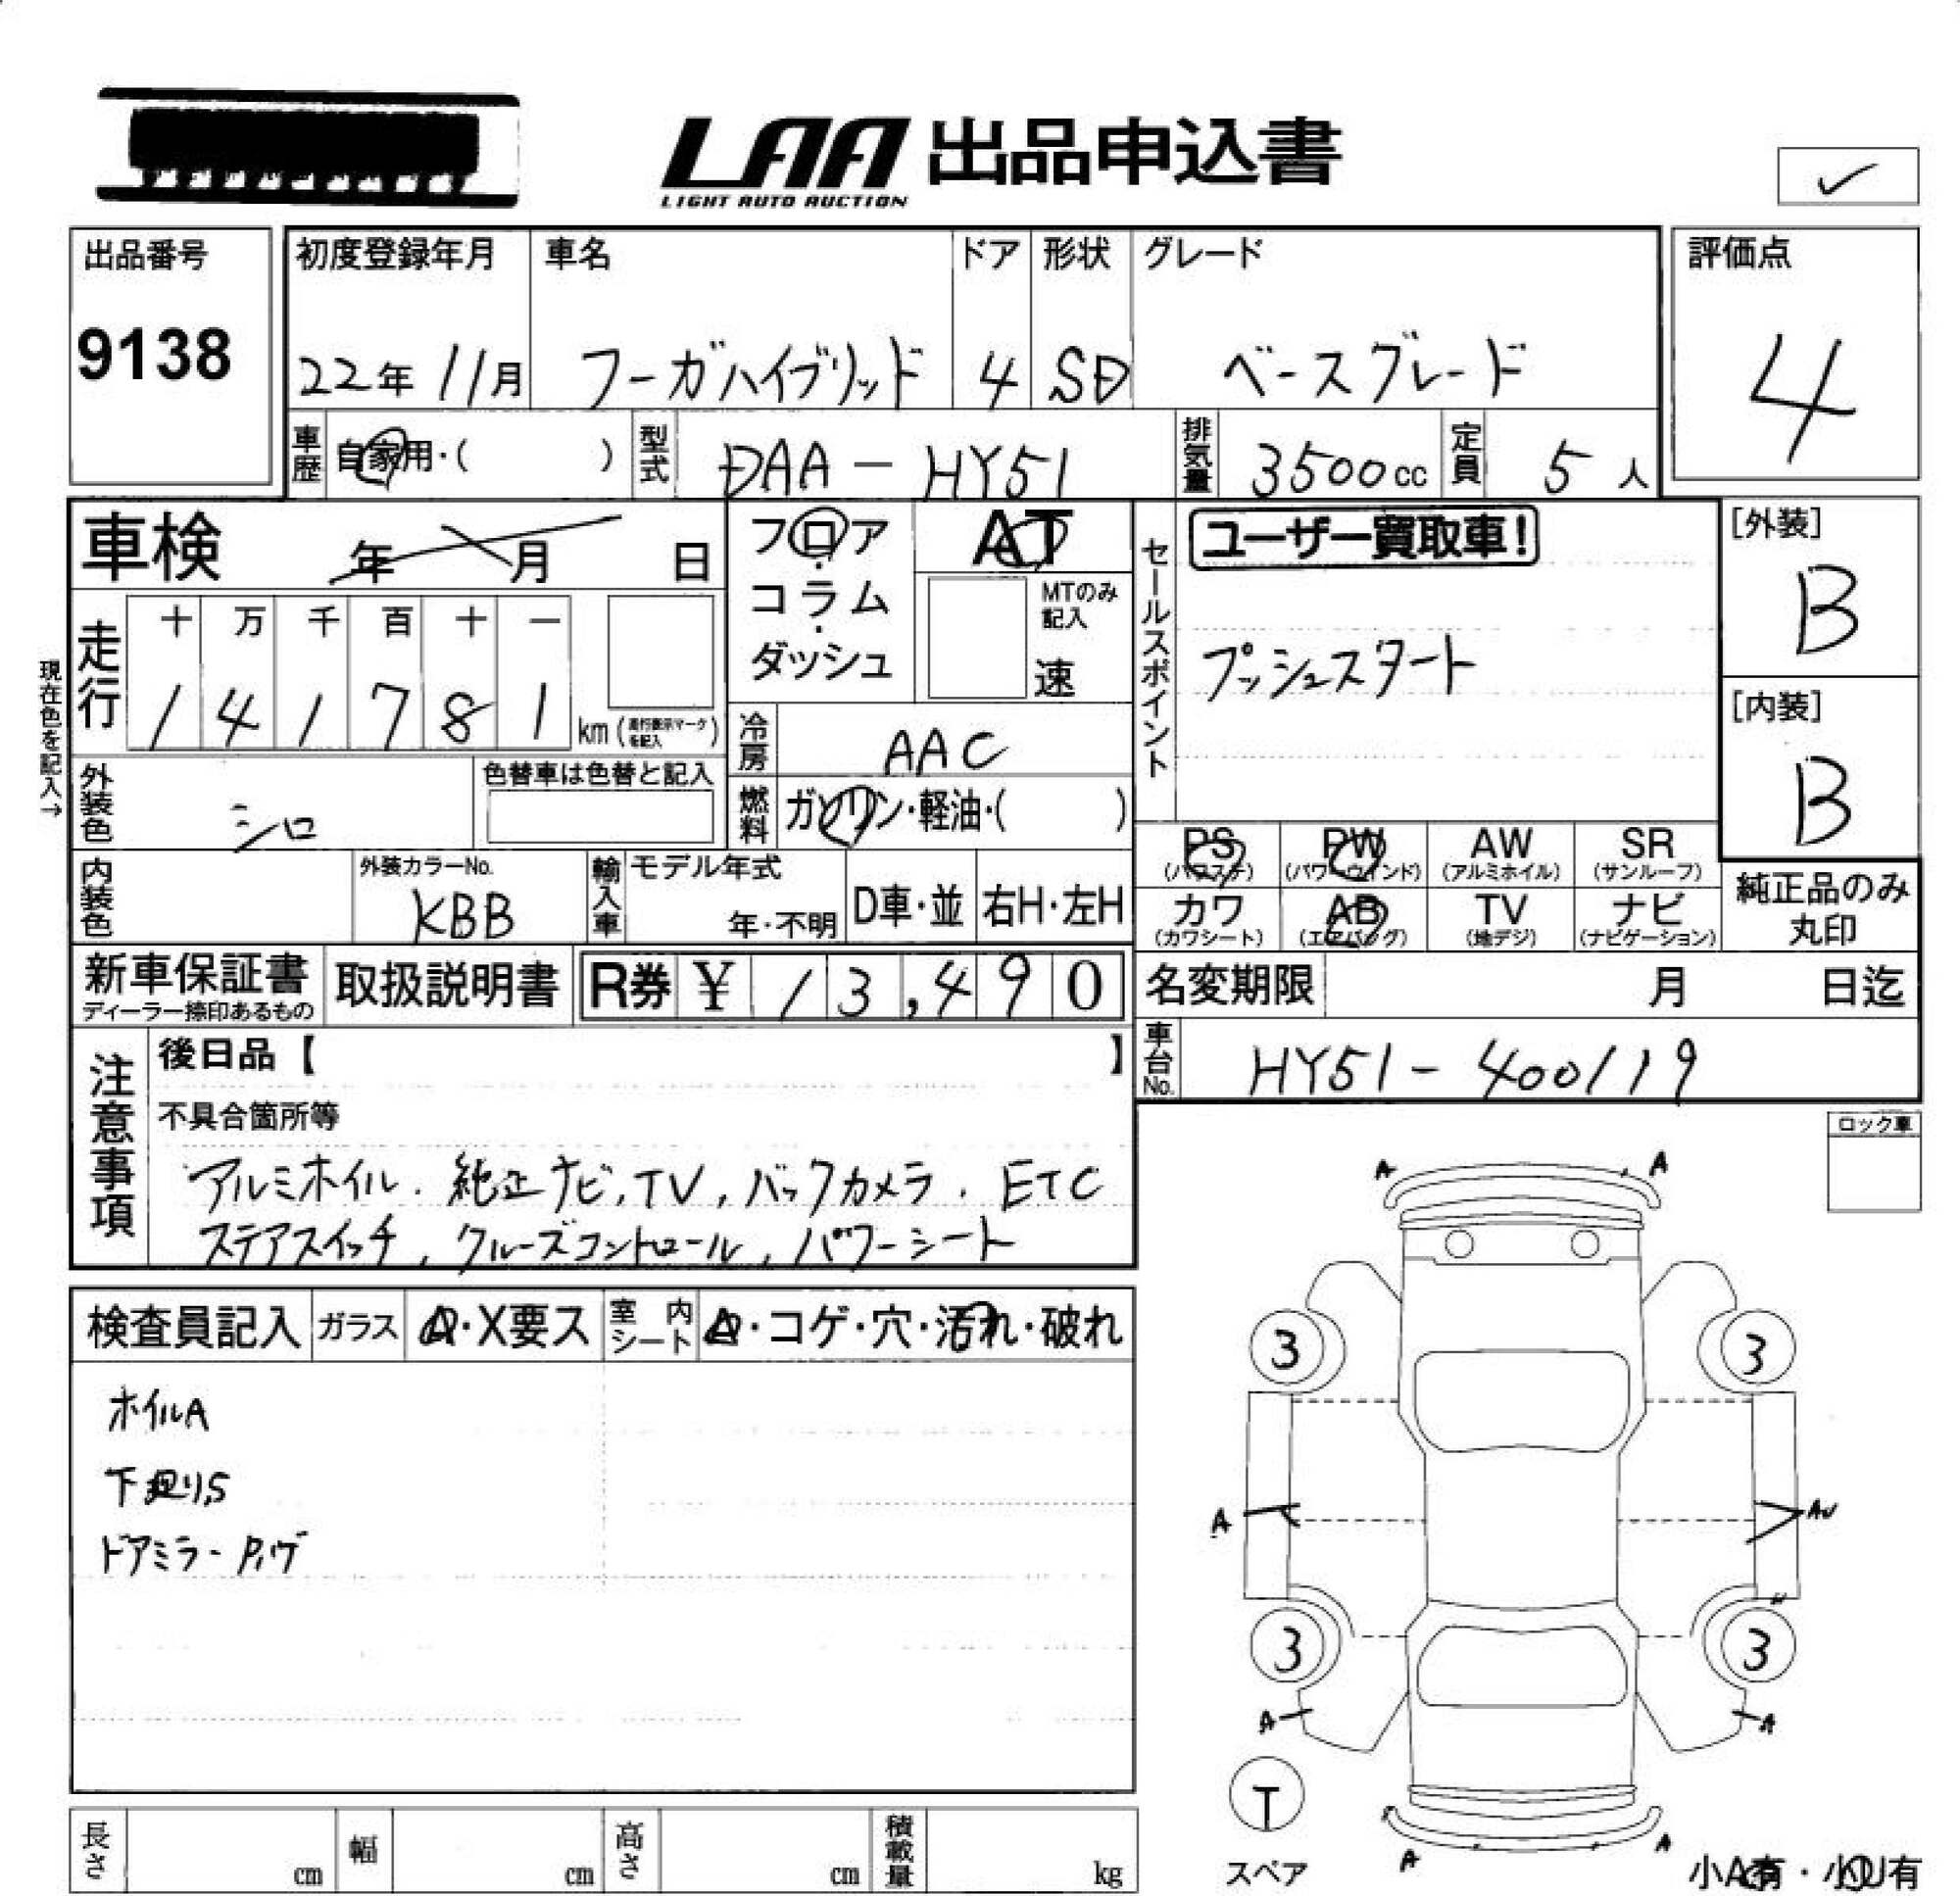 LAA 出品申込書
LIGHT AUTO AUCTION
出品番号 初度登録年月 車名 ドア 形状 グレード 評価点
9138 22年 11月 フーガハイブリッド 4 SD ベースグレード 4
車歴 自家用・( ) 型式 DAA-HY51 排気量 3500cc 定員 5人
車検 年 月 日 フロア・コラム・ダッシュ AT MTのみ記入 速
セールスポイント ユーザー買取車! [外装] B
プッシュスタート [内装] B
現在色を記入→
走行 十 万 千 百 十 一
1 4 1 7 8 1 km (走行表示マークを記入)
冷房 AAC
外装色 シロ 色替車は色替と記入 燃料 ガソリン・軽油・( )
PS (パワステ) PW (パワーウインド) AW (アルミホイル) SR (サンルーフ)
カワ (カワシート) AB (エアバッグ) TV (地デジ) ナビ (ナビゲーション) 純正品のみ丸印
内装色 外装カラーNo. KBB 輸入車 モデル年式 年・不明 D車・並 右H・左H
新車保証書 ディーラー捺印あるもの 取扱説明書 R券 ¥ 13,490 名変期限 月 日迄
注意事項 後日品【 】 車台No. HY51-400119
不具合箇所等
アルミホイル. 純正ナビ, TV, バックカメラ. ETC
ステアスイッチ, クルーズコントロール, パワーシート
ロック車
検査員記入 ガラス A・X要ス 室内シート A・コゲ・穴・汚れ・破れ
ホイルA
下廻りS
ドアミラー
A A
3 3
A AU
3 3
A A
T
スペア
A A
小A有・小U有
長さ cm 幅 cm 高さ cm 積載量 kg